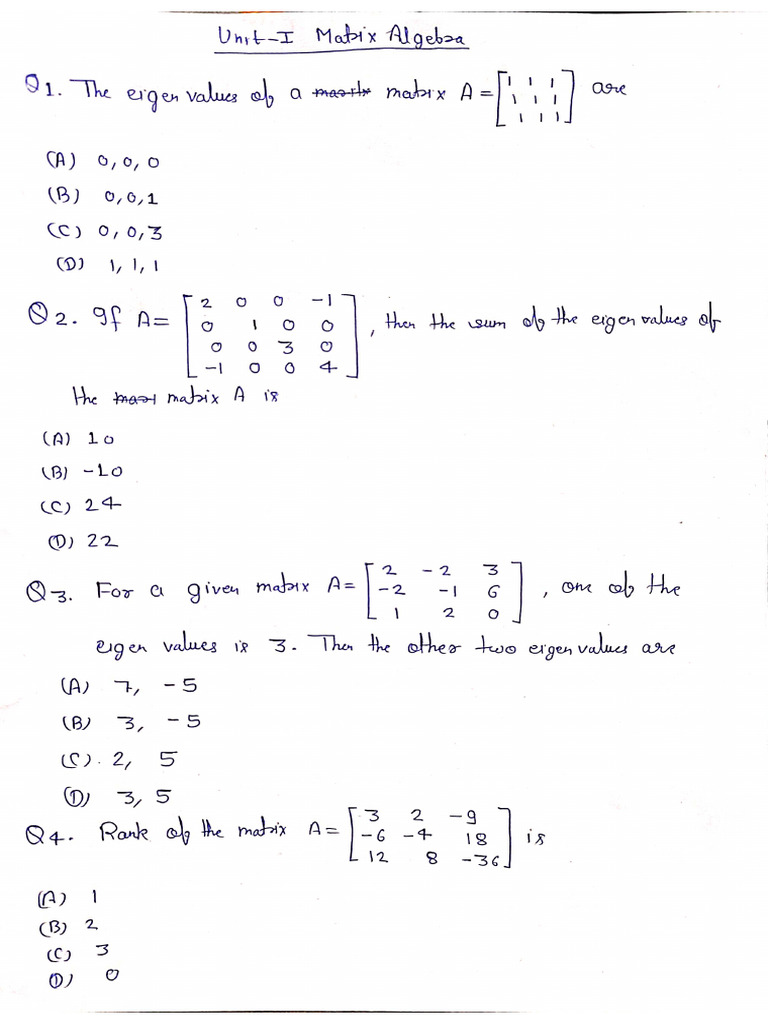 Unit-I Matrix Algebra
Q1. The eigen values of a matrix A = [1 1 1
1 1 1
1 1 1] are
(A) 0, 0, 0
(B) 0, 0, 1
(C) 0, 0, 3
(D) 1, 1, 1
Q2. If A = [2 0 0 -1
0 1 0 0
0 0 3 0
-1 0 0 4], then the sum of the eigen values of
the matrix A is
(A) 10
(B) -10
(C) 24
(D) 22
Q3. For a given matrix A = [2 -2 3
-2 -1 6
1 2 0], one of the
eigen values is 3. Then the other two eigen values are
(A) 7, -5
(B) 3, -5
(C). 2, 5
(D) 3, 5
Q4. Rank of the matrix A = [3 2 -9
-6 -4 18
12 8 -36] is
(A) 1
(B) 2
(C) 3
(D) 0